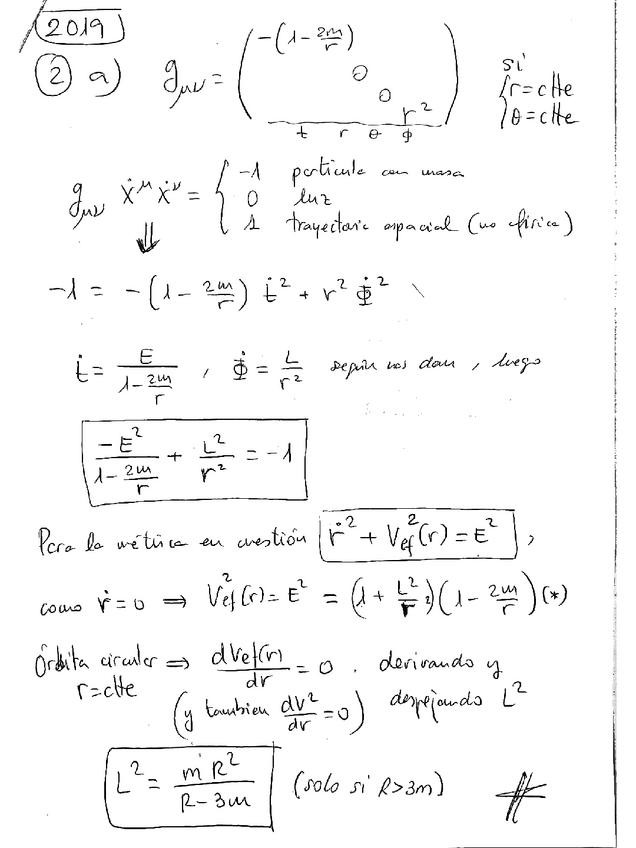 2019
② a) g_{μν} = ( -(1 - 2m/r) 0 0 r² ) si { r = ctte
t r θ ϕ { θ = ctte
g_{μν} ẋ^μ ẋ^ν = { -1 partícula con masa
0 luz
1 trayectoria espacial (no física)
⇓
-1 = -(1 - 2m/r) ṫ² + r² ϕ̇²
ṫ = E/(1 - 2m/r) , ϕ̇ = L/r² según nos dan, luego
-E²/(1 - 2m/r) + L²/r² = -1
Para la métrica en cuestión ṙ² + V²ef(r) = E² ,
como ṙ = 0 ⇒ V²ef(r) = E² = (1 + L²/r²)(1 - 2m/r) (*)
Órbita circular ⇒ dVef(r)/dr = 0 . derivando y
r = ctte (y tambien dV²/dr = 0) despejando L²
L² = m R²/(R - 3m) (solo si R > 3m)